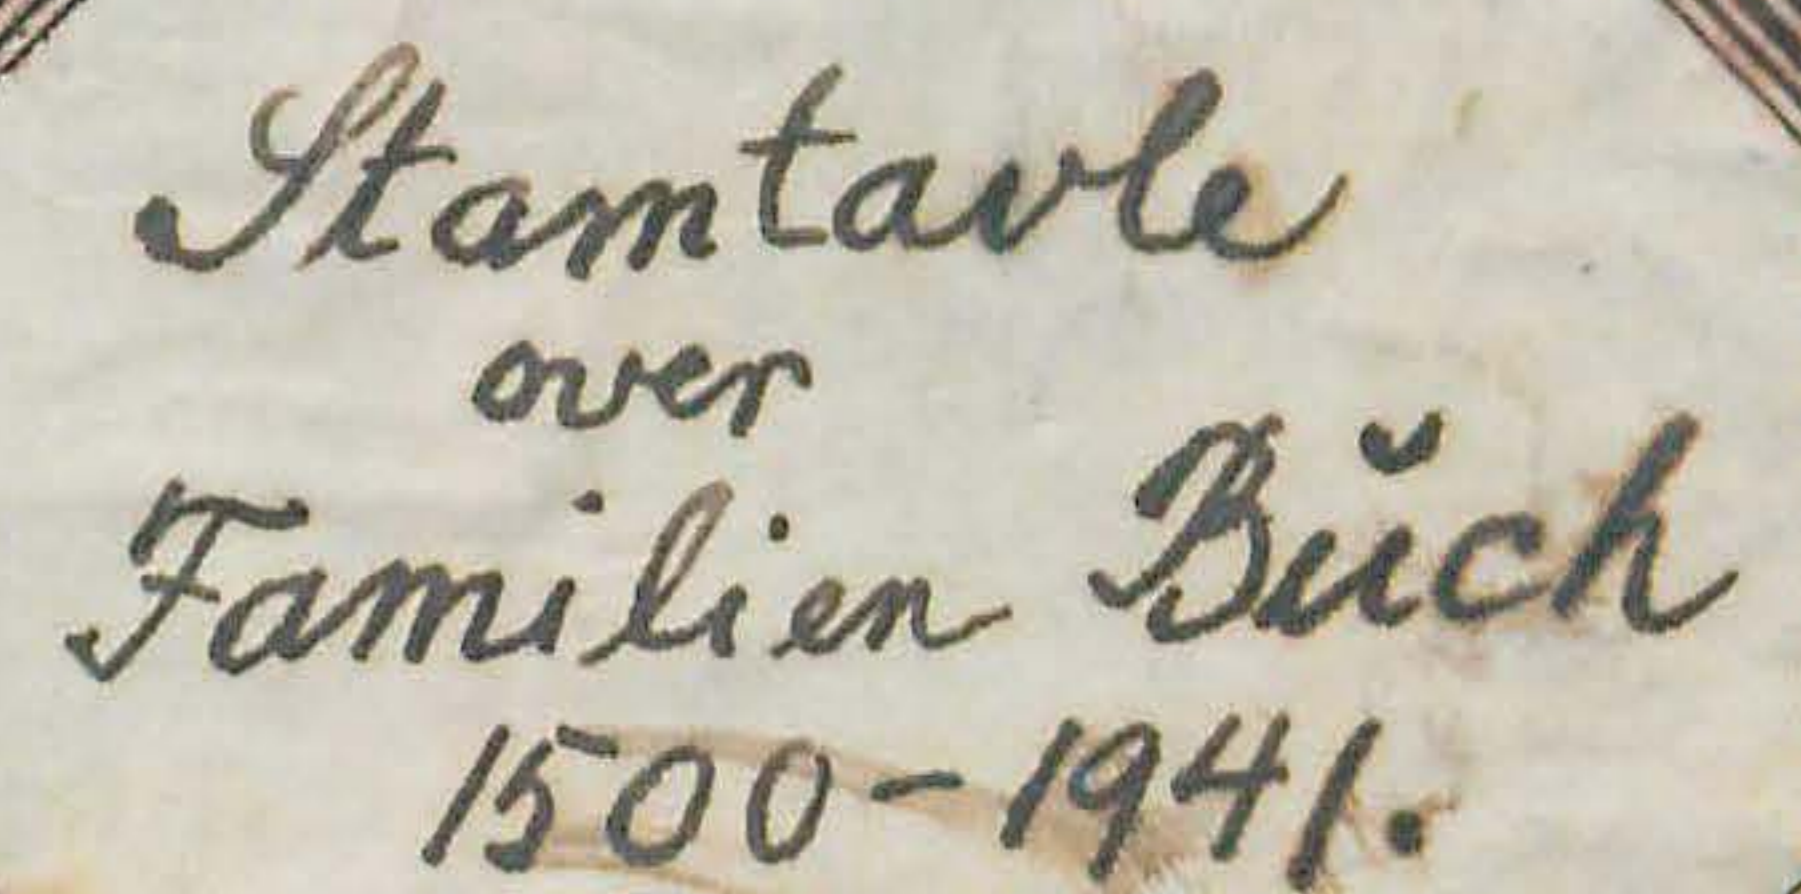 Stamtavle
over
Familien Bŭch
1500-1941.